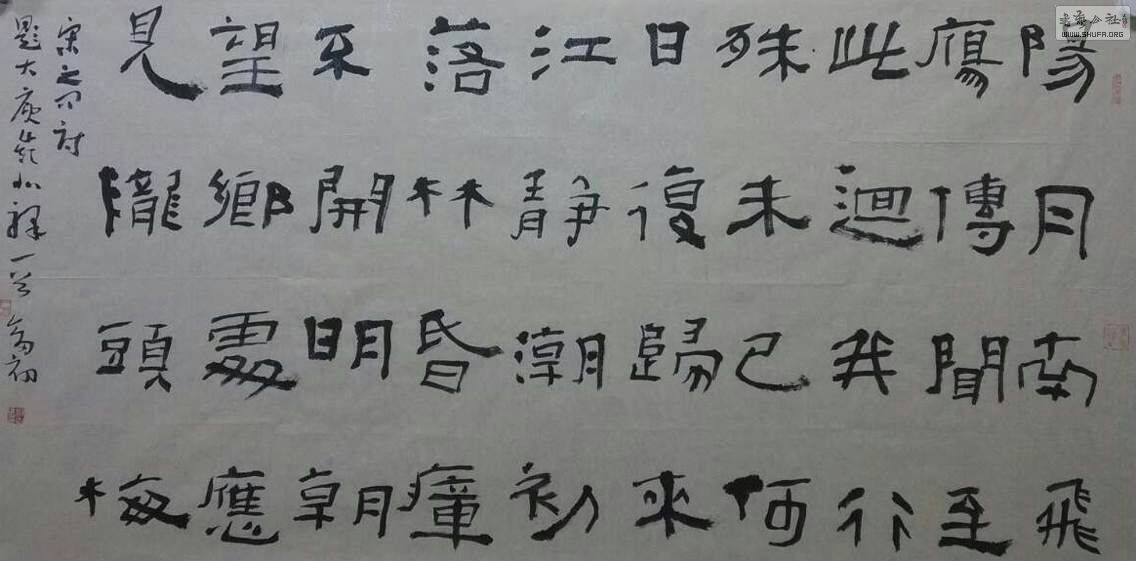 陽月南飛
鴈傳聞至
此迴我行
殊未已何
日復歸來
江靜潮初
落林昏瘴
不開明朝
望鄉處應
見隴頭梅
宋之问詩
題大庾嶺北驛一首
WWW.SHUFA.ORG